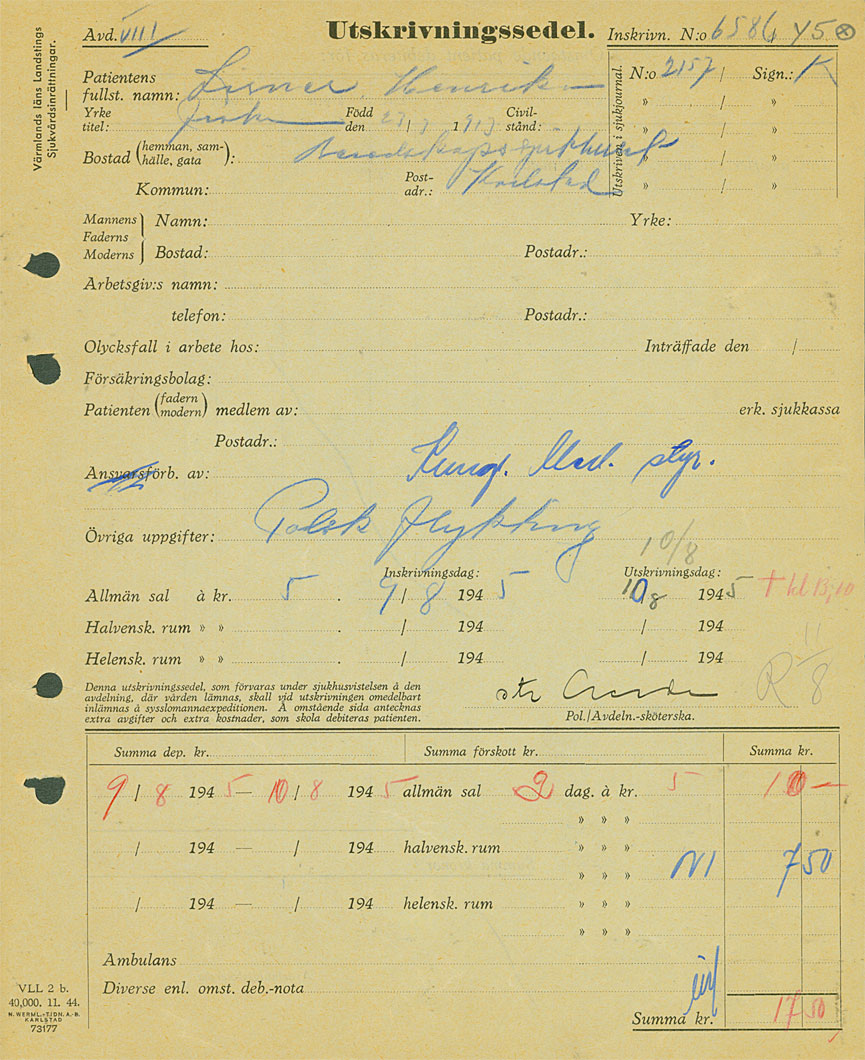 Värmlands läns Landstings
Sjukvårdsinrättningar.
Utskrivningssedel.
Avd. VIII
Inskrivn. N:o 6586/45
Patientens
fullst. namn: Henrik
Yrke
titel:
Född
den 1913
Civil-
stånd:
Bostad (hemman, sam-
hälle, gata):
Kommun:
Post-
adr.: Karlstad
Utskriven i sjukjournal.
N:o 2157 / Sign.: K
» / »
» / »
» / »
» / »
Mannens
Faderns
Moderns
Namn: Yrke:
Bostad: Postadr.:
Arbetsgiv:s namn:
telefon: Postadr.:
Olycksfall i arbete hos: Inträffade den /
Försäkringsbolag:
Patienten (fadern
modern) medlem av: erk. sjukkassa
Postadr.:
Ansvarsförb. av: Kungl. Med. styr.
Övriga uppgifter: Polsk flykting
10/8
Inskrivningsdag: Utskrivningsdag:
Allmän sal à kr. 5 . 9 / 8 1945 10/8 1945 † kl 13,10
Halvensk. rum » » . / 194 / 194
Helensk. rum » » . / 194 / 194
R 11/8
Denna utskrivningssedel, som förvaras under sjukhusvistelsen å den
avdelning, där vården lämnas, skall vid utskrivningen omedelbart
inlämnas å sysslomannaexpeditionen. Å omstående sida antecknas
extra avgifter och extra kostnader, som skola debiteras patienten.
Pol./Avdeln.-sköterska.
Summa dep. kr. Summa förskott kr. Summa kr.
9 / 8 1945 — 10 / 8 1945 allmän sal 2 dag. à kr. 5 10 —
» » »
/ 194 — / 194 halvensk. rum » » »
» » » 7 50
/ 194 — / 194 helensk. rum » » »
» » »
Ambulans
Diverse enl. omst. deb.-nota
Summa kr. 17 50
VLL 2 b.
40,000. 11. 44.
N. WERML.-TIDN. A.-B.
KARLSTAD
73177